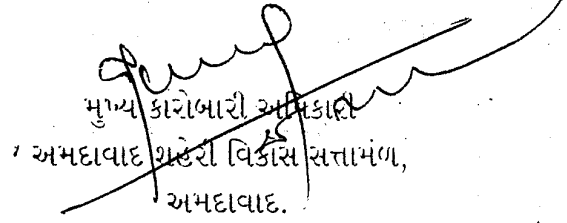 મુખ્ય કારોબારી અધિકારી
અમદાવાદ શહેરી વિકાસ સત્તામંળ,
અમદાવાદ.